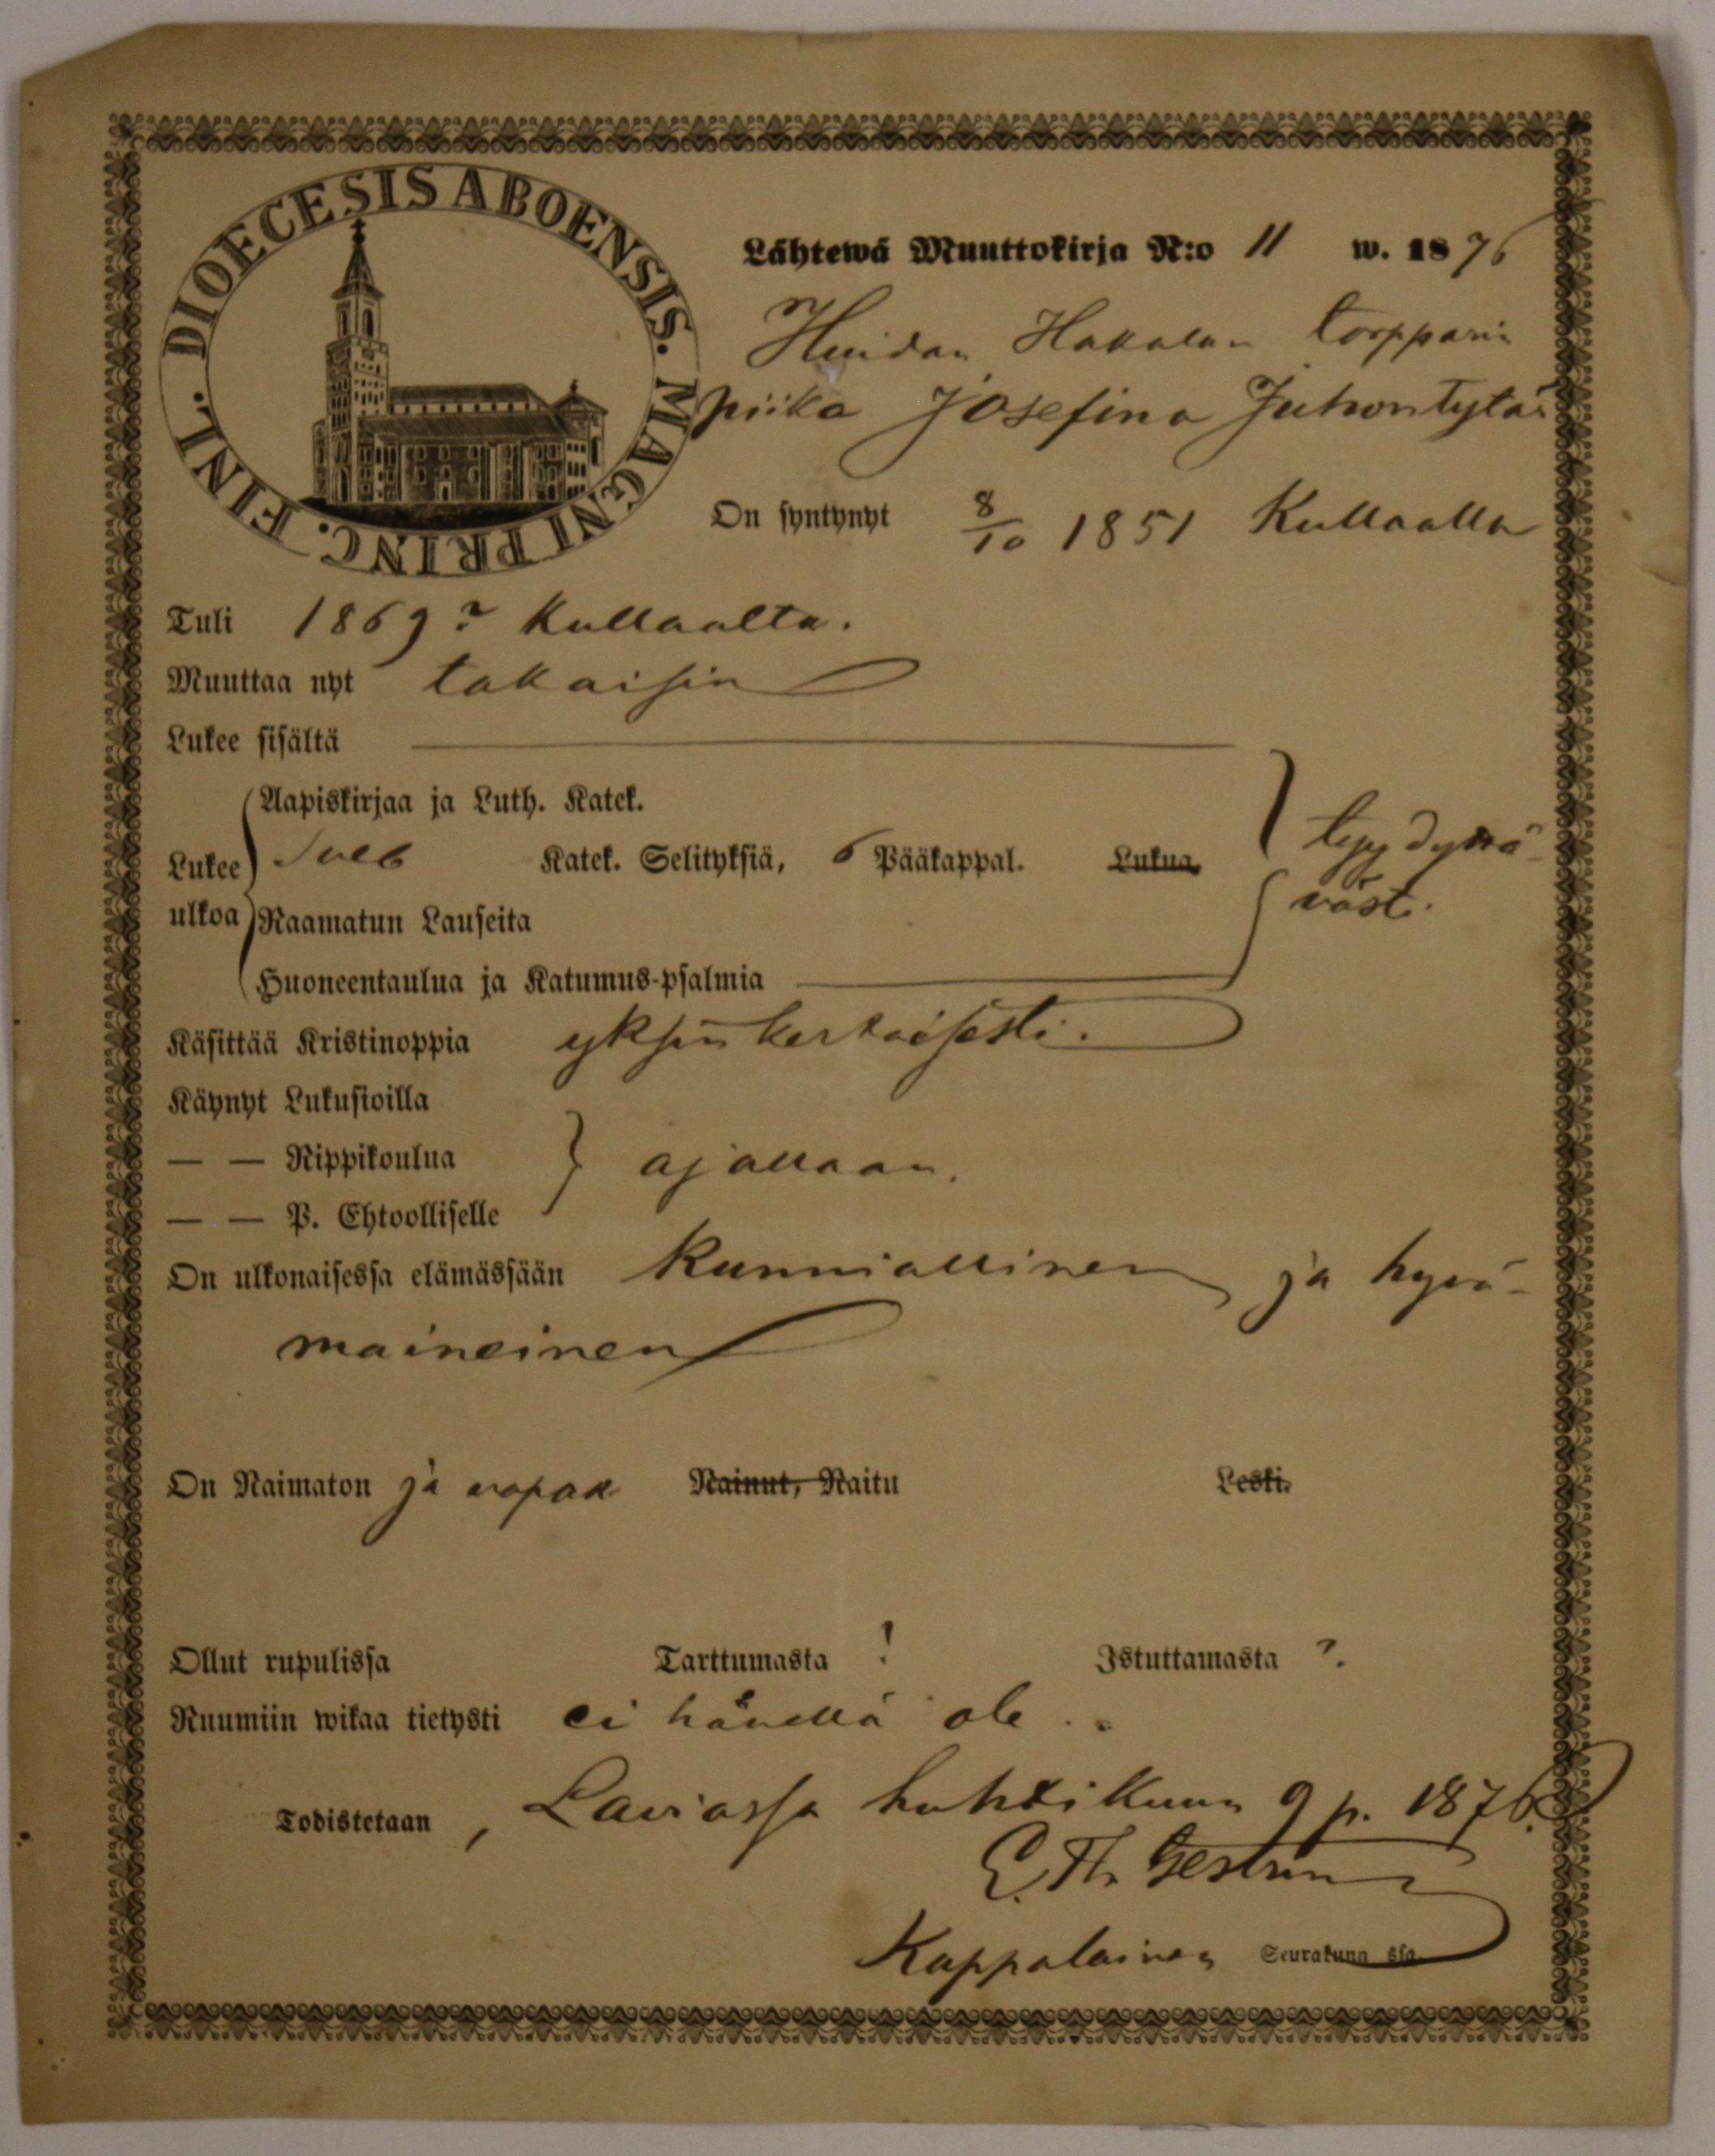 DIOECESIS ABOENSIS. MAGNI PRINC. FINL.
Lähtewä Muuttokirja N:o 11 w. 1876
Huidan Hakalan torpparin
piika Josefina Juhontytär
On syntynyt 8/10 1851 Kullaalla
Tuli 1869? Kullaalta.
Muuttaa nyt takaisin
Lukee sisältä
Aapiskirjaa ja Luth. Katek.
Lukee Sveb Katek. Selityksiä, 6 Pääkappal. Lukua,
tyydyttä-
ulkoa Raamatun Lauseita
västi.
Huoneentaulua ja Katumus-psalmia
Käsittää Kristinoppia yksinkertaisesti.
Käynyt Lukusioilla
— — Rippikoulua ajallaan.
— — P. Ehtoolliselle
On ulkonaisessa elämässään kunniallinen ja hyvä-
maineinen
On Naimaton ja vapaa Nainut, Naitu Leski.
Ollut rupulissa Tarttumasta ! Istuttamasta ?.
Ruumiin wikaa tietysti ei hänellä ole.
Todistetaan, Laviassa huhtikuun 9 p. 1876.
Kappalainen Seurakunn ssa